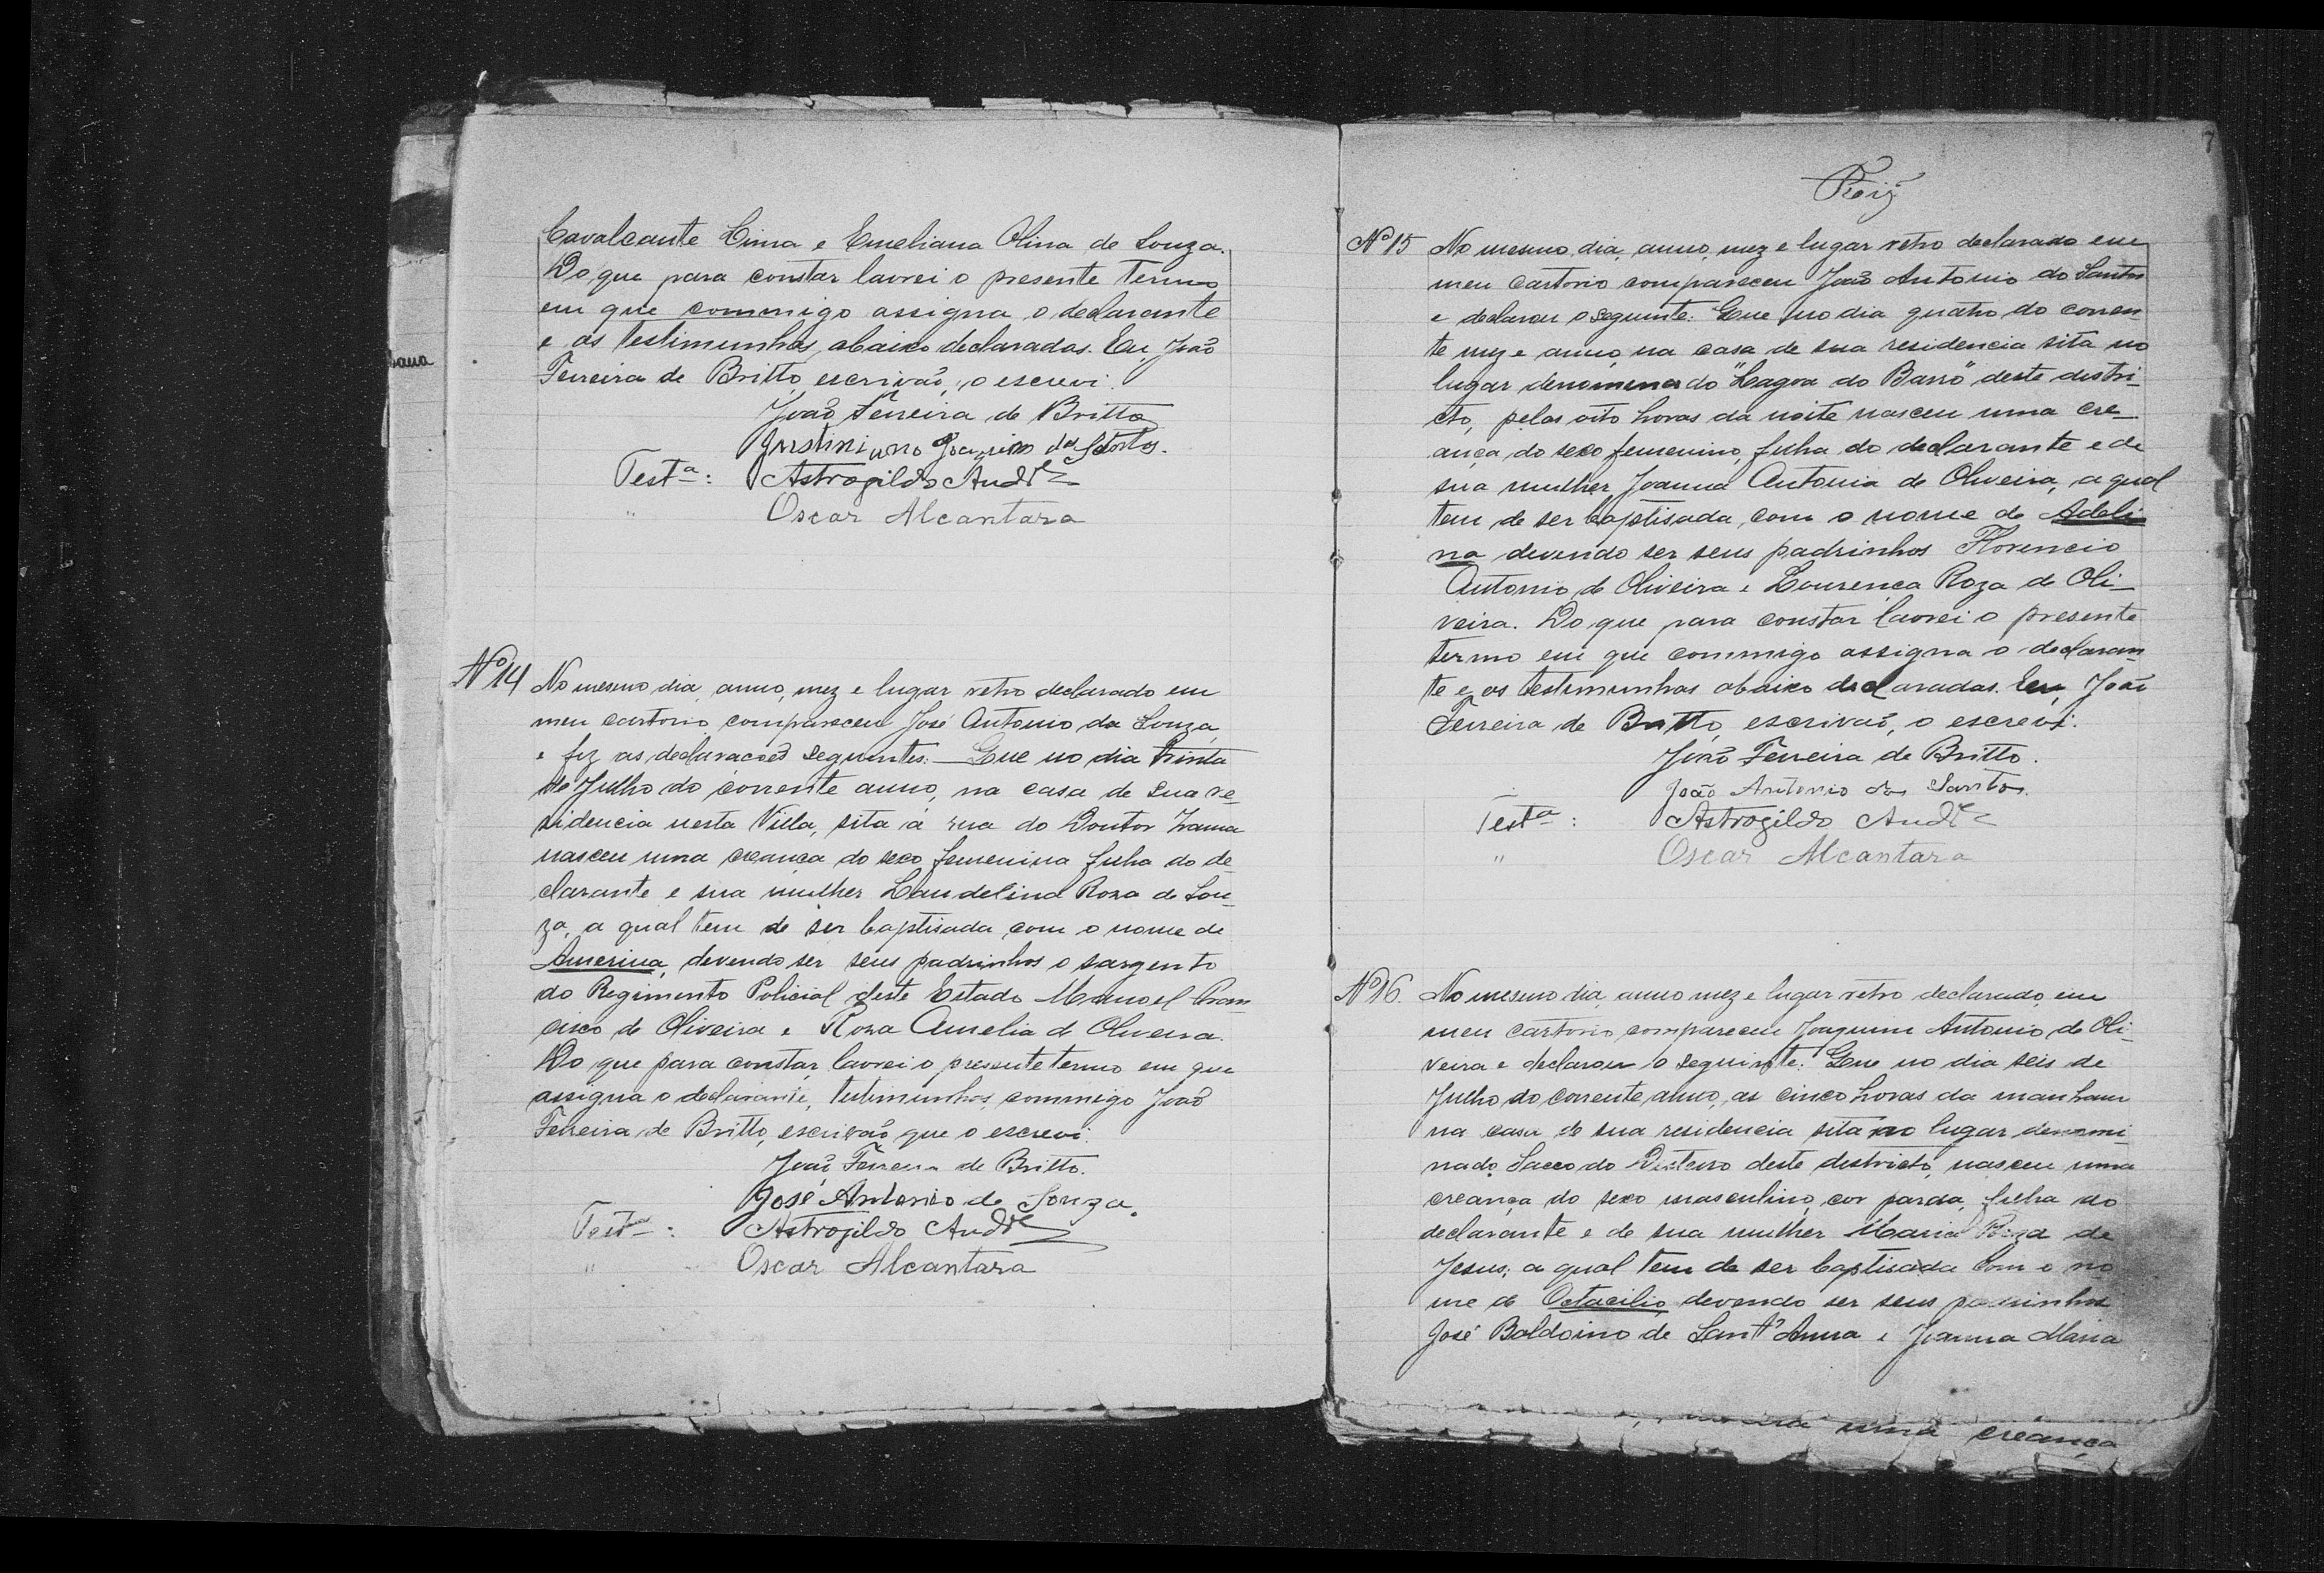 Cavalcante Lima e Emeliana Olina de Souza.
Do que para constar lavrei o presente termo
em que commigo assigna o declarante
e as testimunhas abaixo declaradas. Eu João
Ferreira de Britto, escrivão, o escrevi.
João Ferreira de Britto
Justiniano Joaquim dos Santos.
Testa: Astrogildo Andre
" Oscar Alcantara
No 14 No mesmo dia, anno, mez e lugar retro declarado em
meu cartorio compareceu José Antonio da Souza
e fez as declaracões seguintes: Que no dia trinta
de Julho do corrente anno, na casa de sua re-
sidencia nesta Villa, sita á rua do Doutor
nasceu uma creança do sexo femenina filha do de-
clarante e sua mulher Laudelina Rosa de Sou-
za, a qual tem de ser baptisada com o nome de
America, devendo ser seus padrinhos o sargento
do Regimento Policial deste Estado Manoel Fran
cisco de Oliveira e Rosa Amelia de Oliveira.
Do que para constar lavrei o presente termo em que
assigna o declarante, testimunhas, commigo João
Ferreira de Britto, escrivão que o escrevi.
João Ferreira de Britto.
José Antonio de Souza.
Testa: Astrogildo Andre
" Oscar Alcantara
bana
7
No 15 No mesmo dia, anno, mez e lugar retro declarado em
meu cartorio compareceu João Antonio do Santos
e declarou o seguinte: Que no dia quatro do corren
te mez e anno, na casa de sua residencia sita no
lugar denominado "Lagoa do Barro" deste distri-
cto, pelas oito horas da noite nasceu uma cre-
ança do sexo femenino, filha do declarante e de
sua mulher Joanna Antonia de Oliveira, a qual
tem de ser baptisada com o nome de Adeli
na devendo ser seus padrinhos Florencio
Antonio de Oliveira e Lourença Roza de Oli-
veira. Do que para constar lavrei o presente
termo em que commigo assigna o declaran
te e as testimunhas abaixo declaradas. Eu, João
Ferreira de Britto, escrivão, o escrevi.
João Ferreira de Britto.
João Antonio dos Santos.
Testa: Astrogildo Andre
" Oscar Alcantara
No 16. No mesmo dia, anno mez e lugar retro declarado, em
meu cartorio compareceu Joaquim Antonio de Oli-
veira e declarou o seguinte: Que no dia seis de
Julho do corrente anno, as cinco horas da manham
na casa de sua residencia sita no lugar denomi-
nado Sacco do deste districto, nasceu uma
creança do sexo masculino, cor parda, filha do
declarante e de sua mulher Maria Roza de
Jesus, a qual tem de ser baptisada com o no
me de Octacilio devendo ser seus padrinhos
José Baldoino de Sant'Anna e Joanna Maria
uma creança